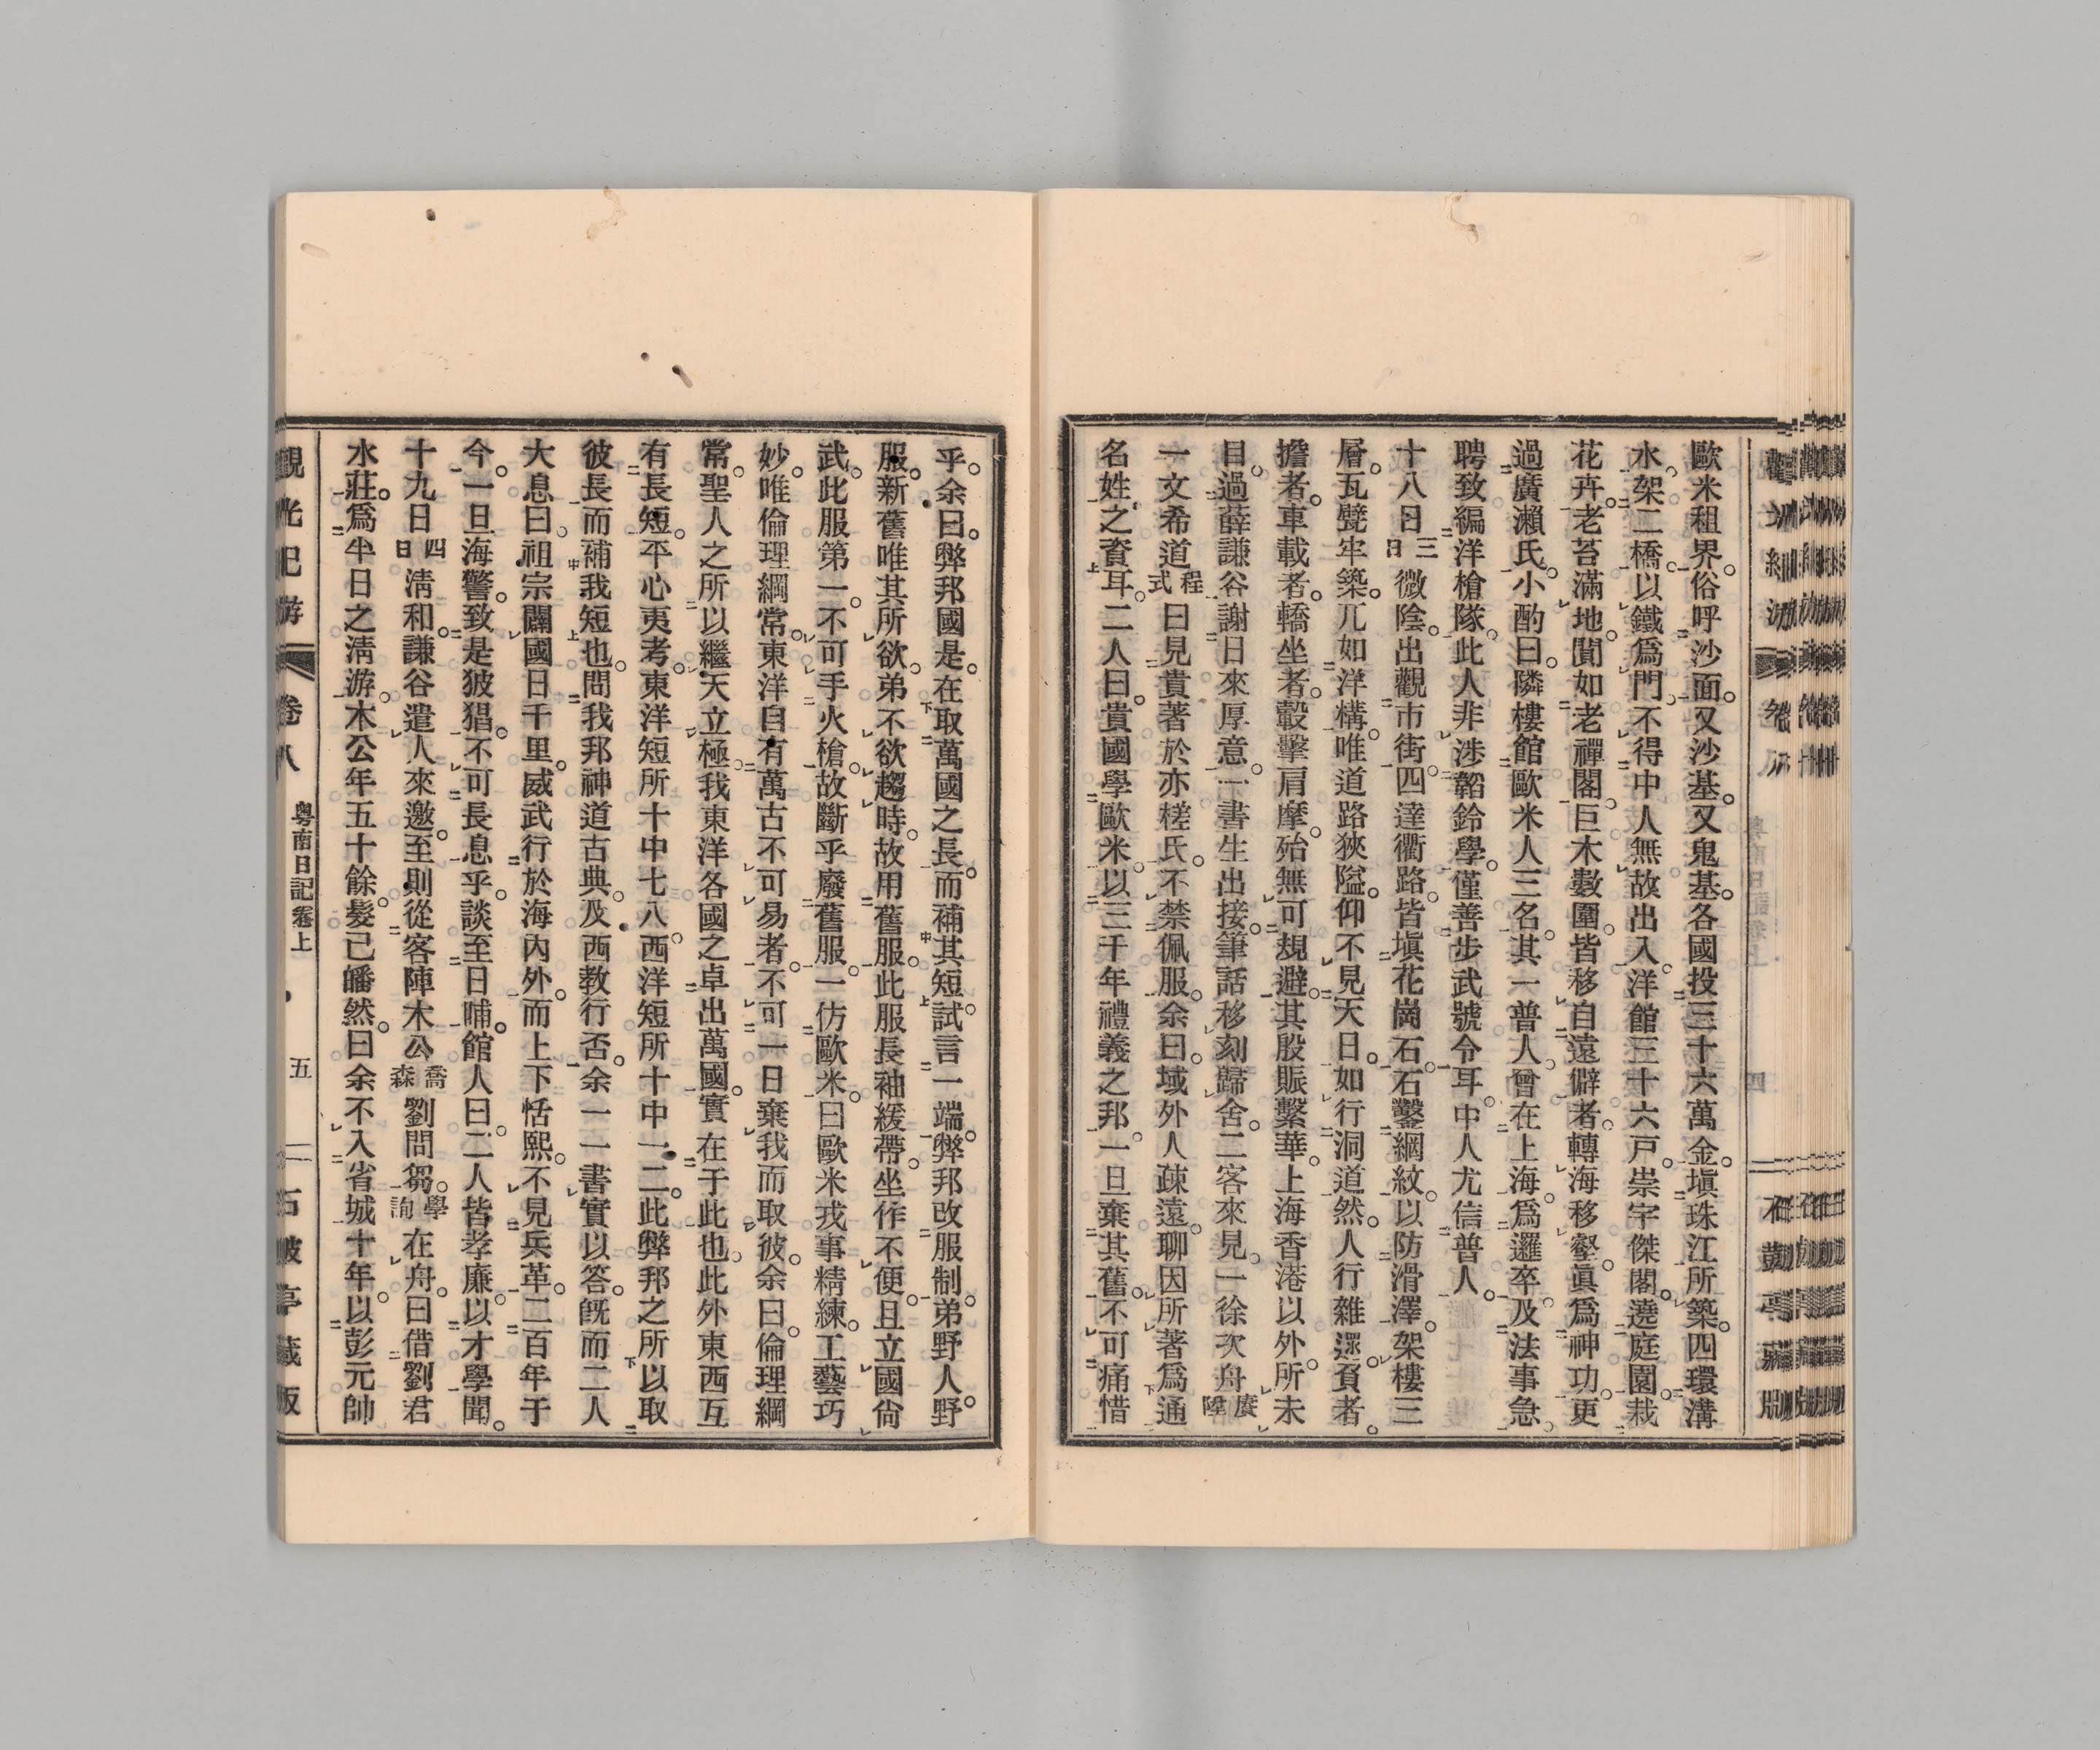 歐米租界。俗呼沙面。又沙基。又鬼基。各國投三十六萬金。塡珠江所築。四環溝
水。架二橋。以鐵爲門。不得中人無故出入。洋館三十六戸。崇宇傑閣。遶庭園。栽
花卉。老苔滿地。闃如老禪閣。巨木數圍。皆移自遠僻者。轉海移壑。眞爲神功。更
過廣瀨氏。小酌。曰。隣樓館歐米人三名。其一普人。曾在上海。爲邏卒。及法事急。
聘致編洋槍隊。此人非渉韜鈴學。僅善步武號令耳。中人尤信普人。
十八日三日微陰。出觀市街。四達衢路。皆塡花崗石。石鑿綱紋。以防滑澤。架樓三
層。瓦甓牢築。兀如洋構。唯道路狹隘。仰不見天日。如行洞道然。人行雜遝。負者。
擔者。車載者。轎坐者。轂擊肩摩。殆無可規避。其殷賑繫華。上海香港以外。所未
目。過薛謙谷。謝日來厚意。一書生出接。筆話移刻歸舍。二客來見。一徐次舟廣陞
一文希道程式曰見貴著於亦槎氏。不禁佩服。余曰。域外人疎遠。聊因所著爲通
名姓之資耳。二人曰。貴國學歐米。以三千年禮義之邦。一旦棄其舊。不可痛惜
乎。余曰。弊邦國是。在取萬國之長。而補其短。試言一端。弊邦改服制。弟野人。野
服。新舊唯其所欲。弟不欲趨時。故用舊服。此服長袖緩帶。坐作不便。且立國尙
武。此服第一。不可手火槍。故斷乎廢舊服。一仿歐米。曰歐米戎事精練。工藝巧
妙。唯倫理綱常。東洋自有萬古不可易者。不可一日棄我而取彼。余曰。倫理綱
常。聖人之所以繼天立極。我東洋各國之卓出萬國。實在于此也。此外東西互
有長短。平心夷考。東洋短所十中七八。西洋短所十中一二。此弊邦之所以取
彼長而補我短也。問我邦神道古典。及西教行否。余一一書實以答。既而二人
大息曰。祖宗闢國日千里。威武行於海內外。而上下恬熙。不見兵革。二百年于
今。一旦海警。致是狓猖。不可長息乎。談至日晡。館人曰。二人皆孝廉。以才學聞。
十九日四日淸和。謙谷遣人來邀。至則從客陣木公喬森劉問芻。學詢在舟。曰借劉君
水莊。爲半日之淸游。木公年五十餘。髮已皤然。曰余不入省城十年。以彭元帥
觀光紀游 卷八 粤南日記卷上 五 石鼓亭藏版